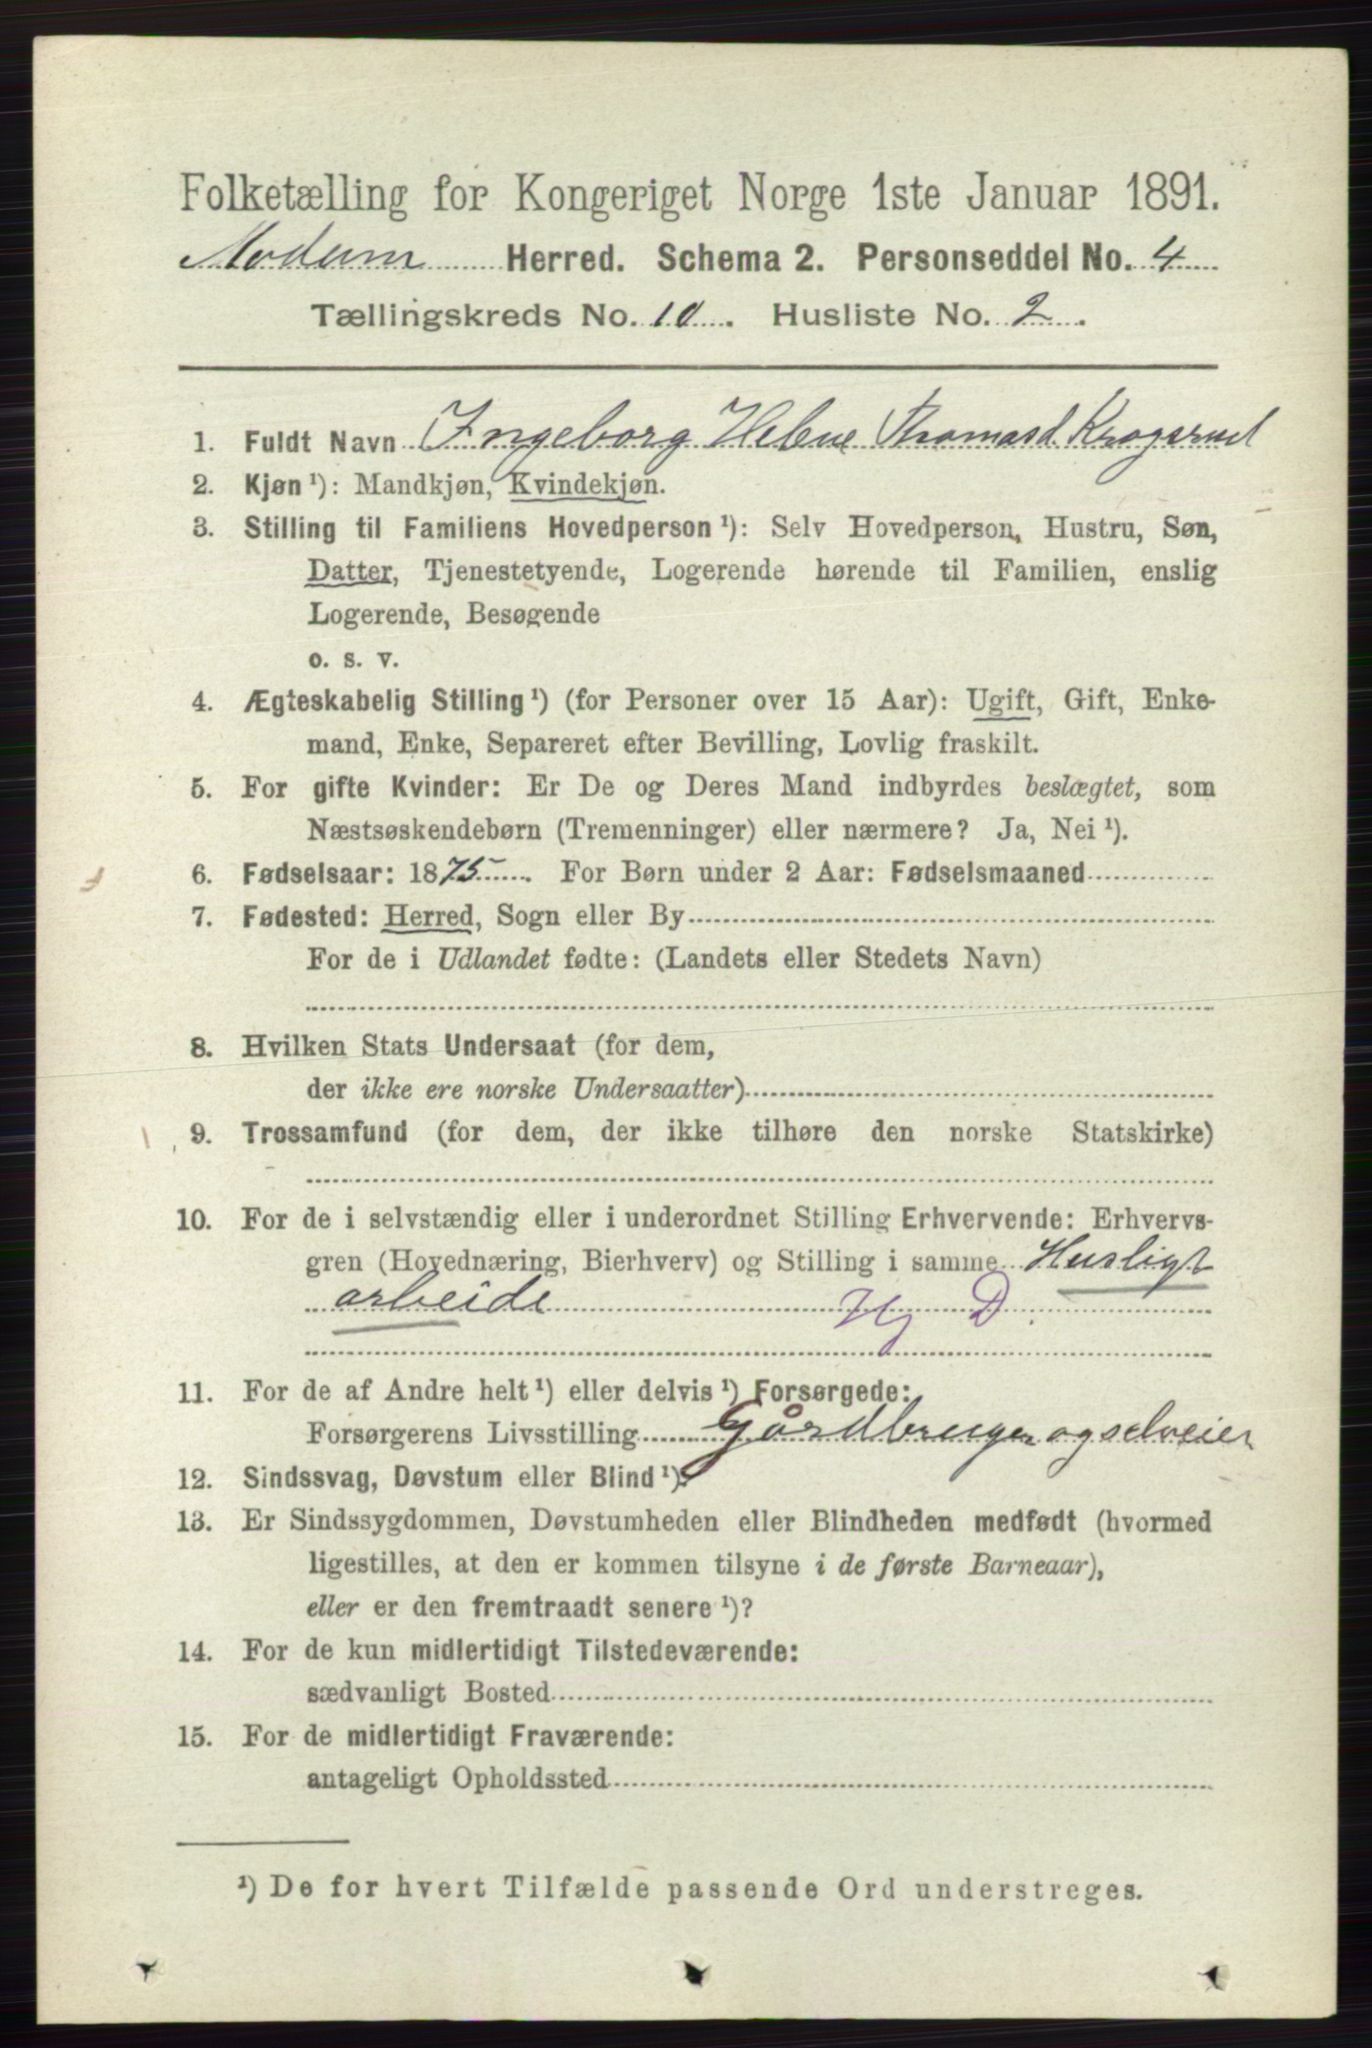 Folketælling for Kongeriget Norge 1ste Januar 1891.
Modum Herred. Schema 2. Personseddel No. 4
Tællingskreds No. 10. Husliste No. 2.
1. Fuldt Navn Ingeborg Helene Thomasd. Krogsrud
2. Kjøn ¹): Mandkjøn, Kvindekjøn.
3. Stilling til Familiens Hovedperson ¹): Selv Hovedperson, Hustru, Søn,
Datter, Tjenestetyende, Logerende hørende til Familien, enslig
Logerende, Besøgende
o. s. v.
4. Ægteskabelig Stilling ¹) (for Personer over 15 Aar): Ugift, Gift, Enke-
mand, Enke, Separeret efter Bevilling, Lovlig fraskilt.
5. For gifte Kvinder: Er De og Deres Mand indbyrdes beslægtet, som
Næstsøskendebørn (Tremenninger) eller nærmere? Ja, Nei ¹).
6. Fødselsaar: 1875. For Børn under 2 Aar: Fødselsmaaned
7. Fødested: Herred, Sogn eller By
For de i Udlandet fødte: (Landets eller Stedets Navn)
8. Hvilken Stats Undersaat (for dem,
der ikke ere norske Undersaatter)
9. Trossamfund (for dem, der ikke tilhøre den norske Statskirke)
10. For de i selvstændig eller i underordnet Stilling Erhvervende: Erhvervs-
gren (Hovednæring, Bierhverv) og Stilling i samme Husligt
arbeide Hj D.
11. For de af Andre helt ¹) eller delvis ¹) Forsørgede:
Forsørgerens Livsstilling Gårdbruger og selveier
12. Sindssvag, Døvstum eller Blind ¹).
13. Er Sindssygdommen, Døvstumheden eller Blindheden medfødt (hvormed
ligestilles, at den er kommen tilsyne i de første Barneaar),
eller er den fremtraadt senere ¹)?
14. For de kun midlertidigt Tilstedeværende:
sædvanligt Bosted
15. For de midlertidigt Fraværende:
antageligt Opholdssted
¹) De for hvert Tilfælde passende Ord understreges.